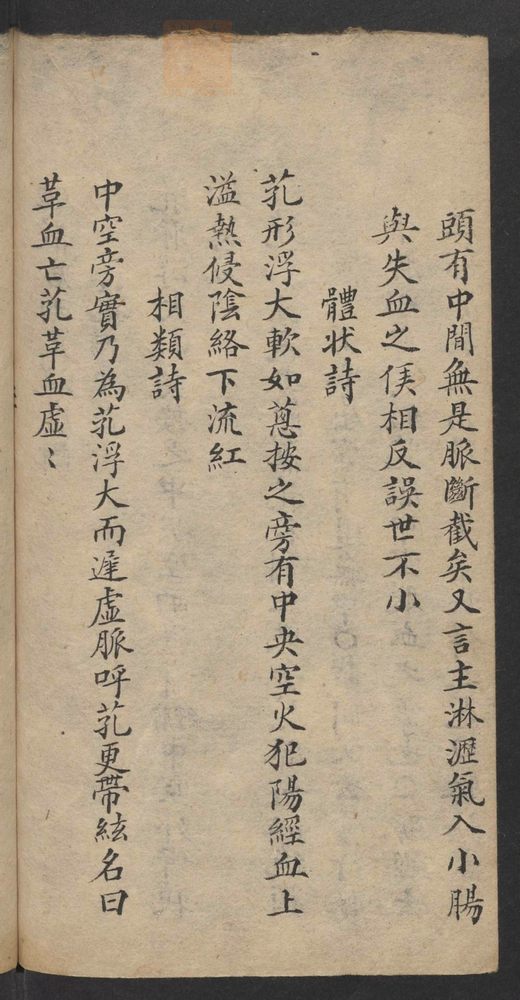 頭有中間無是脈斷截矣又言主淋瀝氣入小腸
與失血之候相反誤世不小
體状詩
芤形浮大軟如蔥按之旁有中央空火犯陽經血上
溢熱侵陰絡下流紅
相類詩
中空旁實乃為芤浮大而遲虛脈呼芤更帶絃名曰
革血亡芤革血虛〻